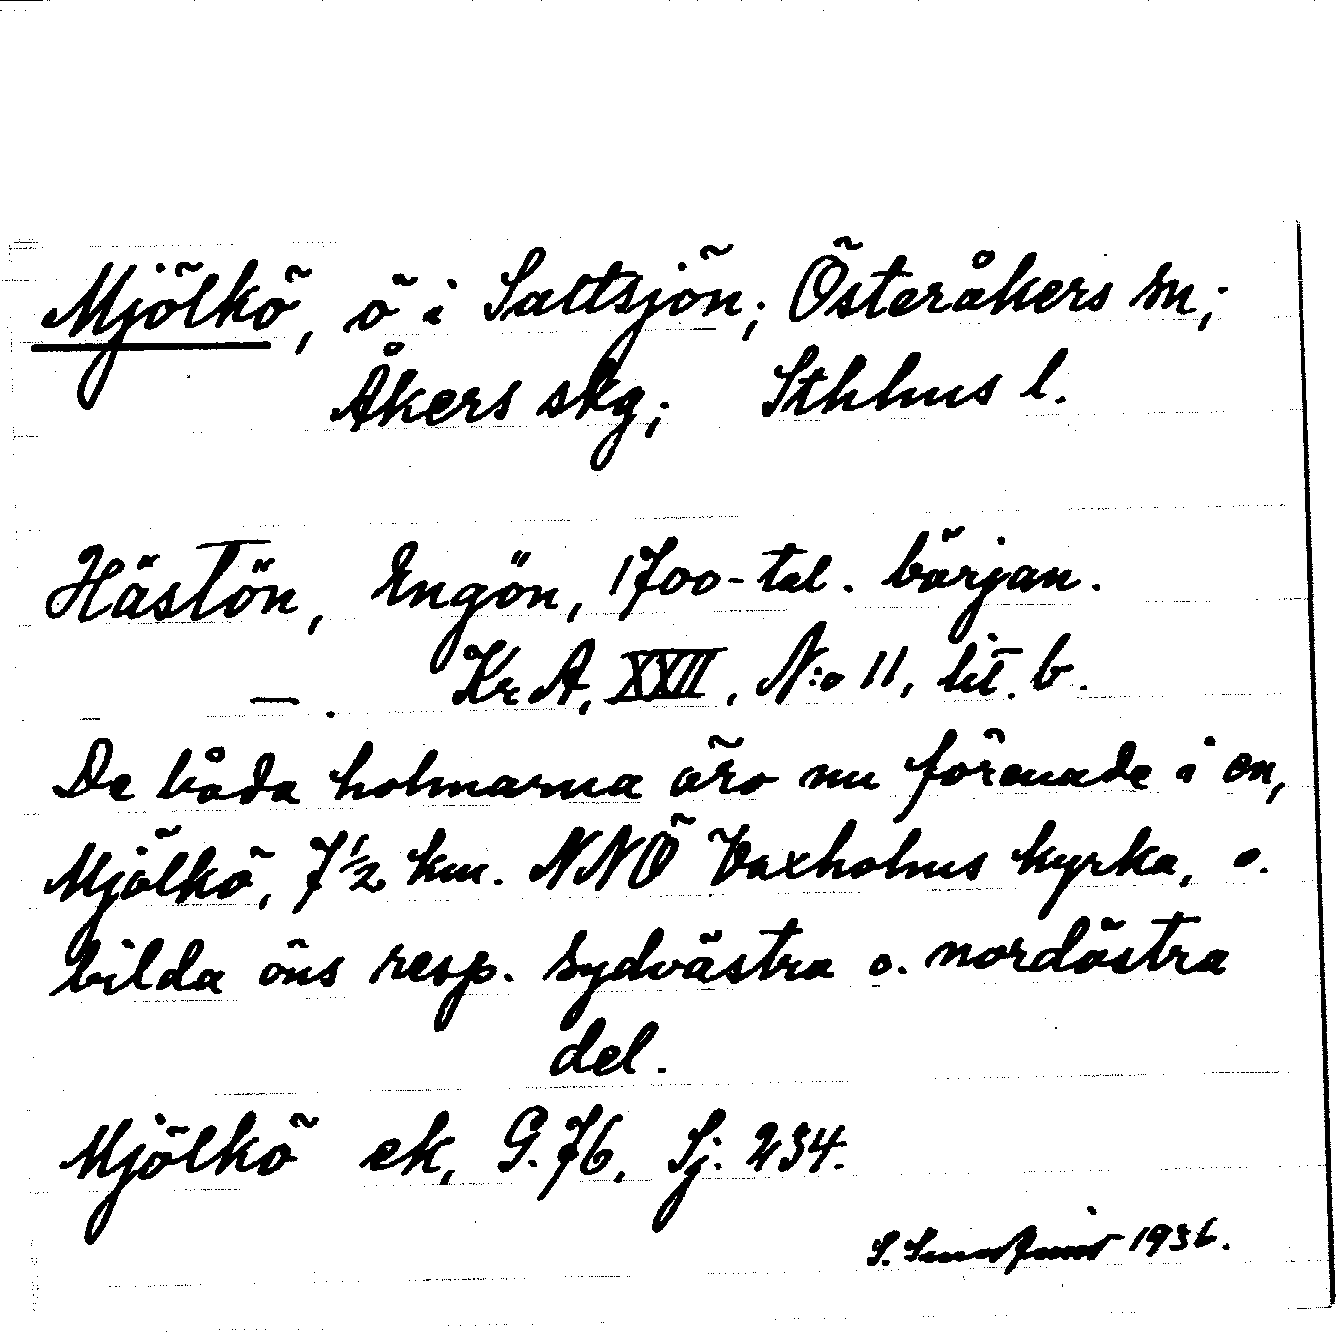 Mjölkö, ö i Saltsjön; Österåkers sn;
Åkers skg; Sthlms l.
Hästön, Engön, 1700-tal. början.
— . Kr A, XXII, N:o 11, lit. b.
De båda holmarna äro nu förenade i en,
Mjölkö, 7½ km. NNÖ Vaxholms kyrka, o.
bilda öns resp. sydvästra o. nordöstra
del.
Mjölkö ek, G. 76, Sj. 234.
S. 1936.